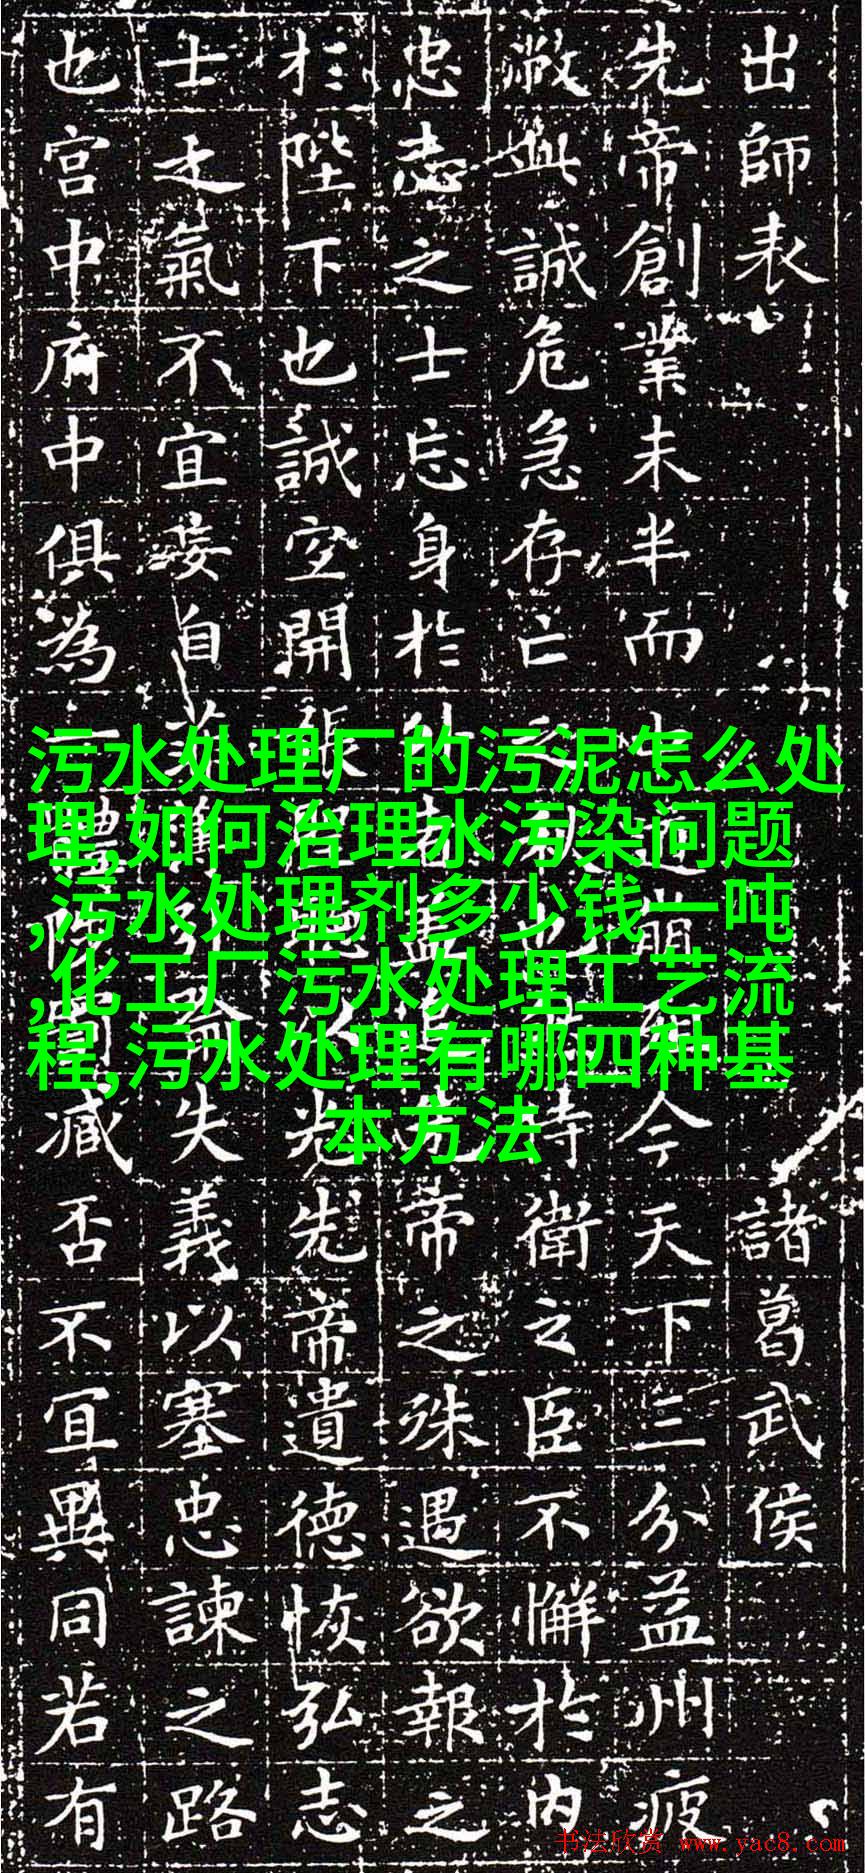 出師表
諸葛武侯
先帝創業未半而
崩
今天下三分益州疲
敝此誠危急存亡之
也
侍衛之臣不懈於内
忠志之士忘身於外
蓋
先帝之殊遇欲報之
於陛下也誠宜開張
以光先帝遺德恢弘志
士之氣不宜妄自菲
失義以塞忠諫之路
也宮中府中俱為一體
罰臧否不宜異同若有
污水处理厂的污泥怎么处
理,如何治理水污染问题
,污水处理剂多少钱一吨
,化工厂污水处理工艺流
程,污水处理有哪四种基
本方法
书法欣赏 www.yac8.com